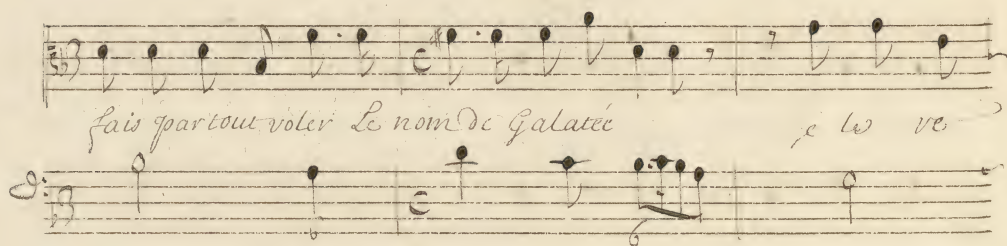 fais partout voler Le nom de Galatée e les ve